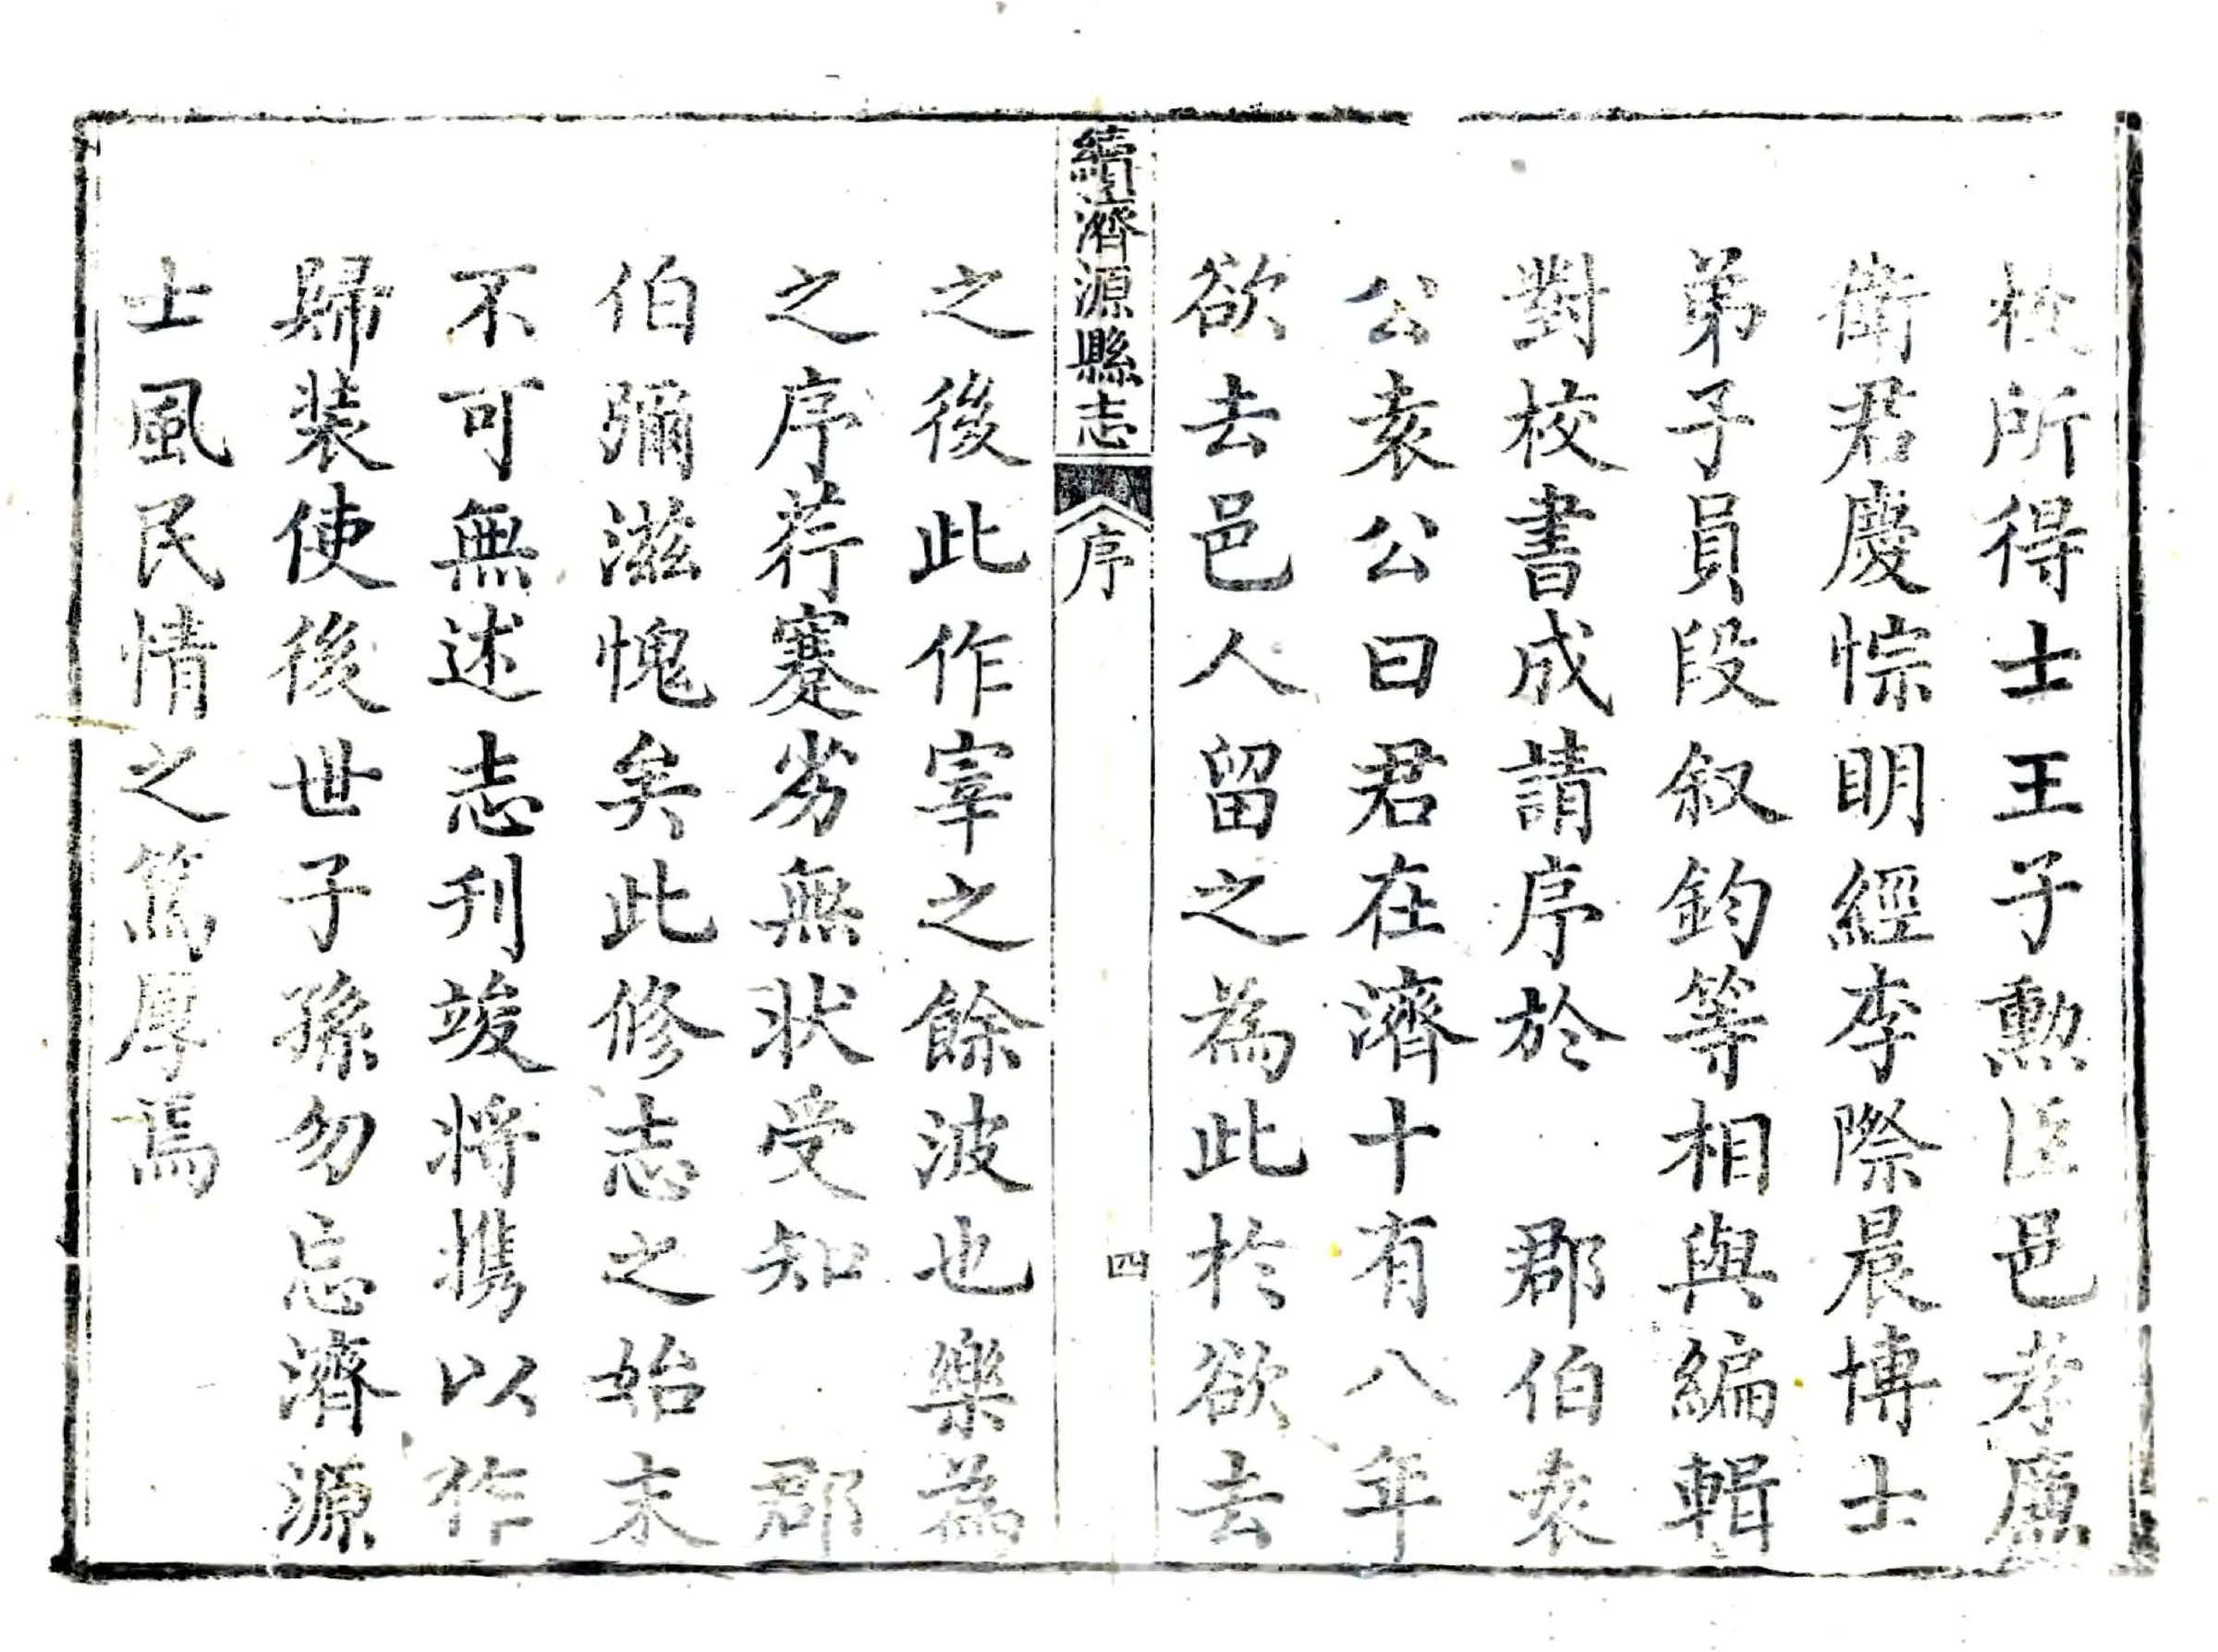 校所得士王子勲臣邑孝廉
衛君慶悰明經李際晨博士
弟子員段叙鈞等相與編輯
對校書成請序於　郡伯袁
公袁公曰君在濟十有八年
欲去邑人留之為此於欲去
續濟源縣志
序
四
之後此作宰之餘波也樂為
之序荇蹇劣無狀受知　郡
伯彌滋愧矣此修志之始末
不可無述志刋竣将携以作
歸装使後世子孫勿忘濟源
士風民情之篤厚焉